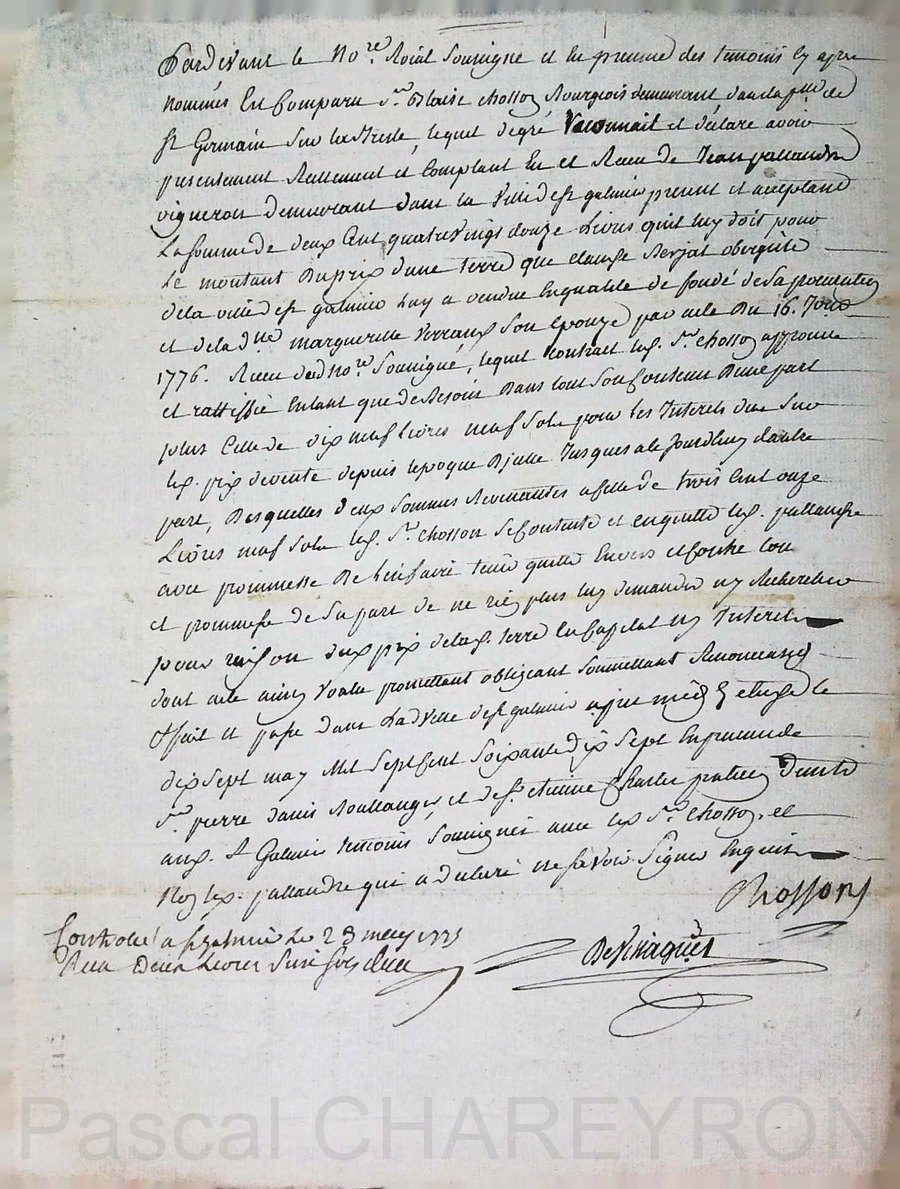 Pardevant le No.re Roial Soussigné et en presence des temoins cy apres
nommés En Comparu S.r Blaise Chosson Bourgeois demeurant dans la p.sse de
S.t Germain Sur la, lequel degré reconnait et declare avoir
presentement Reellement et Comptant Eu et Receu de Jean pallandre
vigneron demeurant dans la Ville de S.t galmier present et acceptand
La Somme de deux Cent quatre vingt douze Livres quil luy doit pour
Le montant Du prix dune terre que Claude Aubergiste
de la ville de S.t galmier Luy a vendue En qualité de fondé de Sa procuration
et de la d.lle margueritte Son Epouze par acte Du 16. Jour
1776. Receu dud. No.re Soussigné, lequel Contract led. S.r Chosson approuve
et rattiffie Entant que de Besoin Dans tout Son Contenu Dune part
plus Celle de dix neuf Livres neuf Sols pour Les Interets due Sur
led. prix de vente depuis lepoque Dycelle Jusques a le Jourdhuy dautre
part, Desquelles deux Sommes Revenantes a Celle de trois Cent onze
Livres neuf Sols led. S.r Chosson Se Contente et en quitte led. pallandre
avec promesse De Len faire tenir quitte Envers et Contre tous
et promesse de Sa part de ne rien plus luy demander ny Rechercher
pour raison dud. prix de lad. terre En Capital ny Interets
dont acte ainsy Voulu promettant obligeant Soumettant Renonceand
ffait et passé dans Ladville de S.t galmier apres midy Etude le
dix Sept may Mil Sept Cent Soixante dix Sept En presence de
S.r pierre danis Boullanger et de S.r Etienne Charles praticien Dud.
aud. S.t Galmier temoins Soussignés avec led. S.r Chosson, et
Non led. pallandre qui a declaré ne Savoir Signer Enquis
Chosson
Controllé a S.t galmier Le 23 may 177
Receu Deux Livres Six Sols